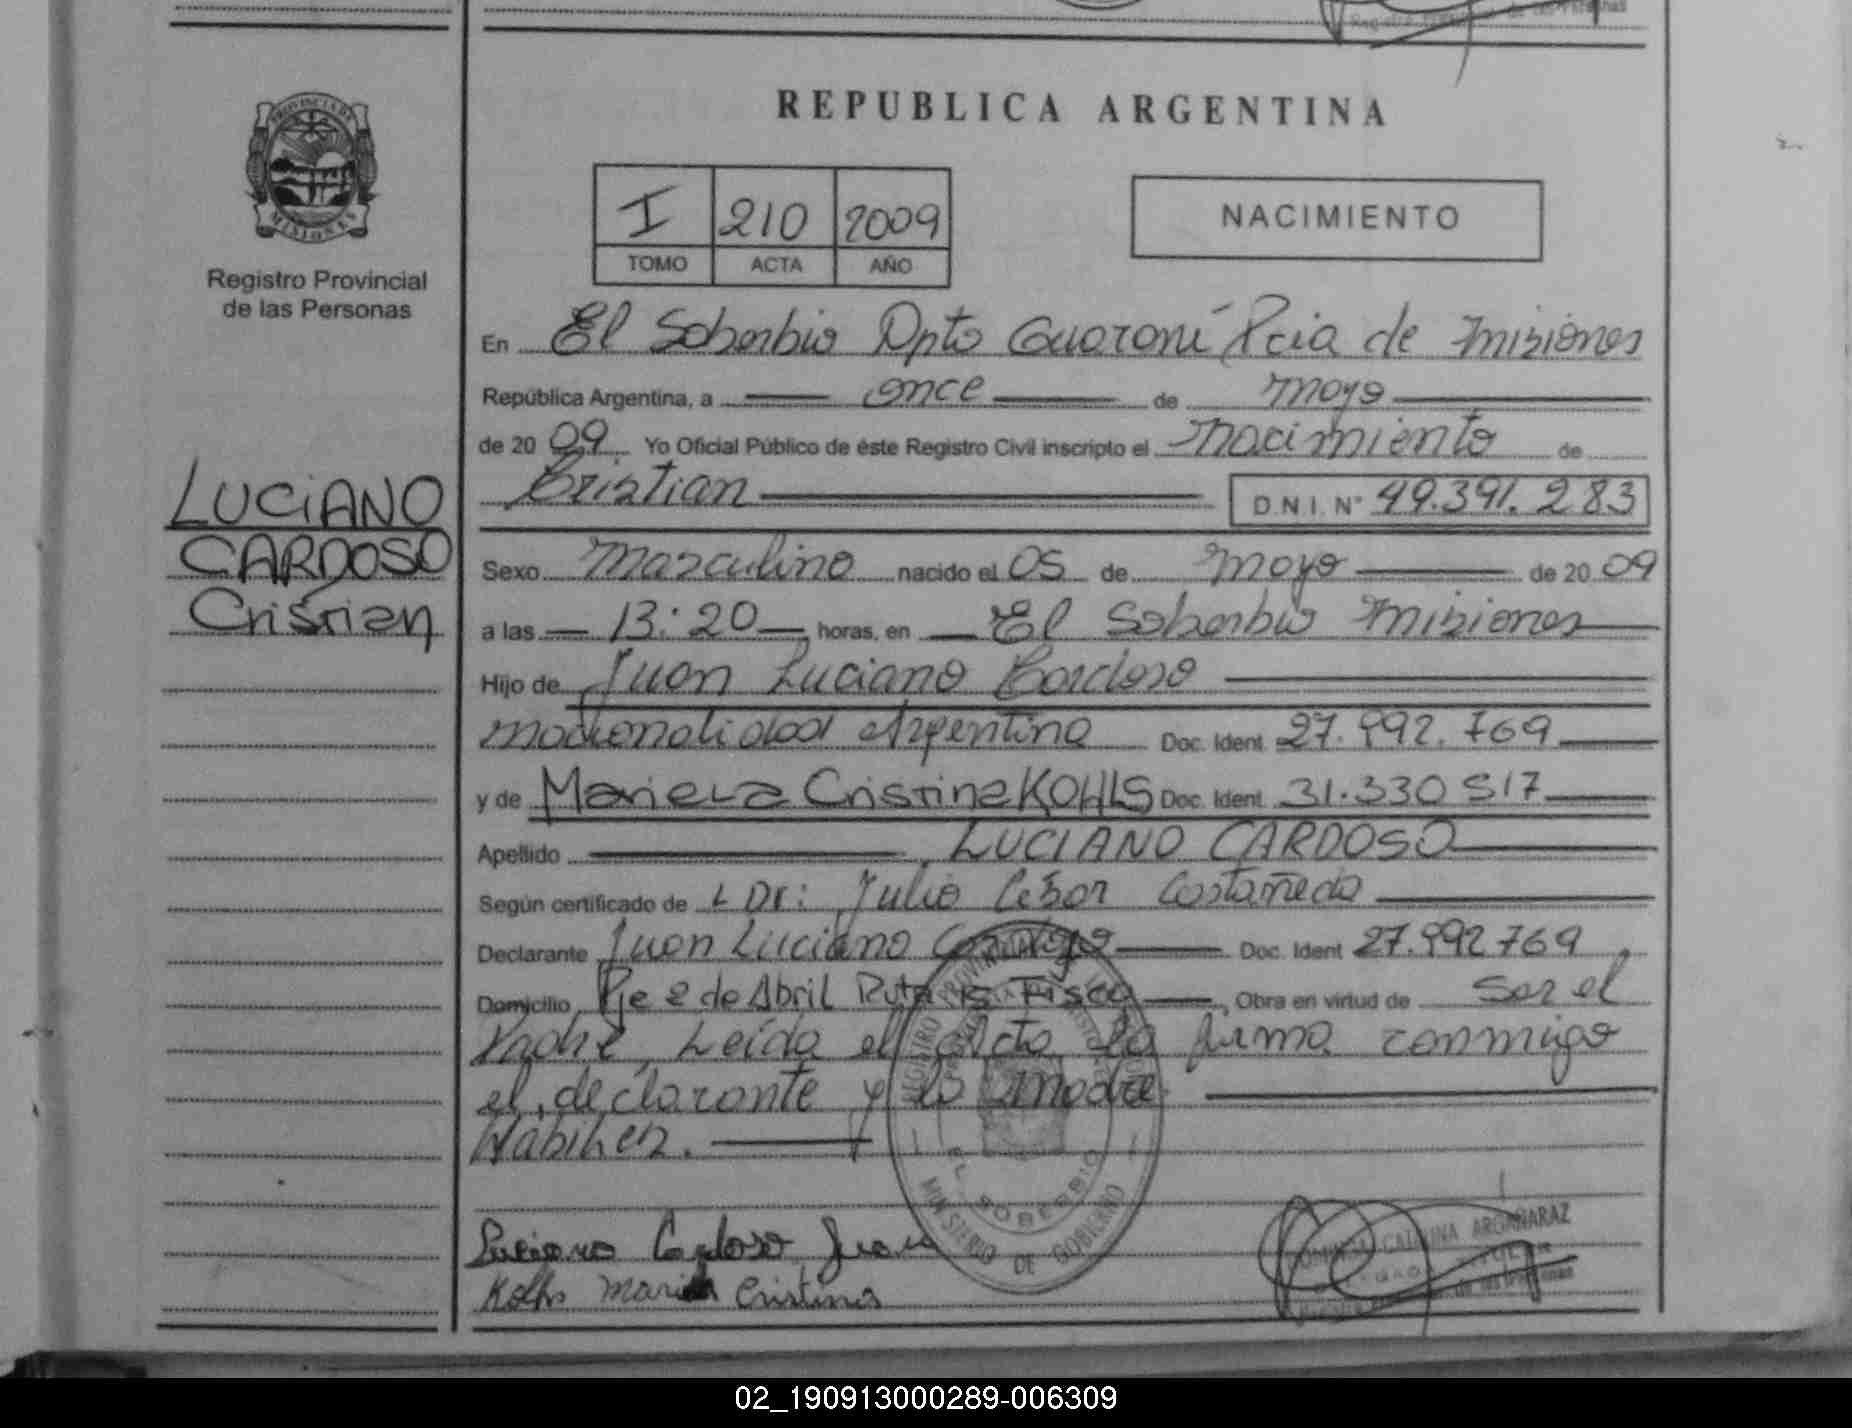 REPUBLICA ARGENTINA
PROVINCIA DE
MISIONES
Registro Provincial
de las Personas
I 210 2009
TOMO ACTA AÑO
NACIMIENTO
En El Soberbio Dpto Guaraní Pcia de Misiones
República Argentina, a once de mayo
de 2009 Yo Oficial Público de éste Registro Civil inscripto el Nacimiento de
Cristian D.N.I. N° 49.391.283
LUCIANO
CARDOSO
Cristian
Sexo Masculino nacido el 05 de mayo de 2009
a las 13:20 horas, en El Soberbio Misiones
Hijo de Juan Luciano Cardoso
nacionalidad Argentina Doc. Ident. 27.992.769
y de Mariela Cristina KOHLS Doc. Ident. 31.330 517
Apellido LUCIANO CARDOSO
Según certificado de Dr: Julio Cesar Costañeda
Declarante Juan Luciano Cardoso Doc. Ident 27.992 769
Domicilio Pje 2 de Abril Ruta Obra en virtud de ser el
Padre, Leída el Acta la firma conmigo
el declarante y la madre.
REGISTRO PROVINCIAL
EL SOBERBIO
MINISTERIO DE GOBIERNO
Luciano Cardoso Juan
Kolhs Cristina
CATALINA ARGAÑARAZ
de las Personas
02_190913000289-006309